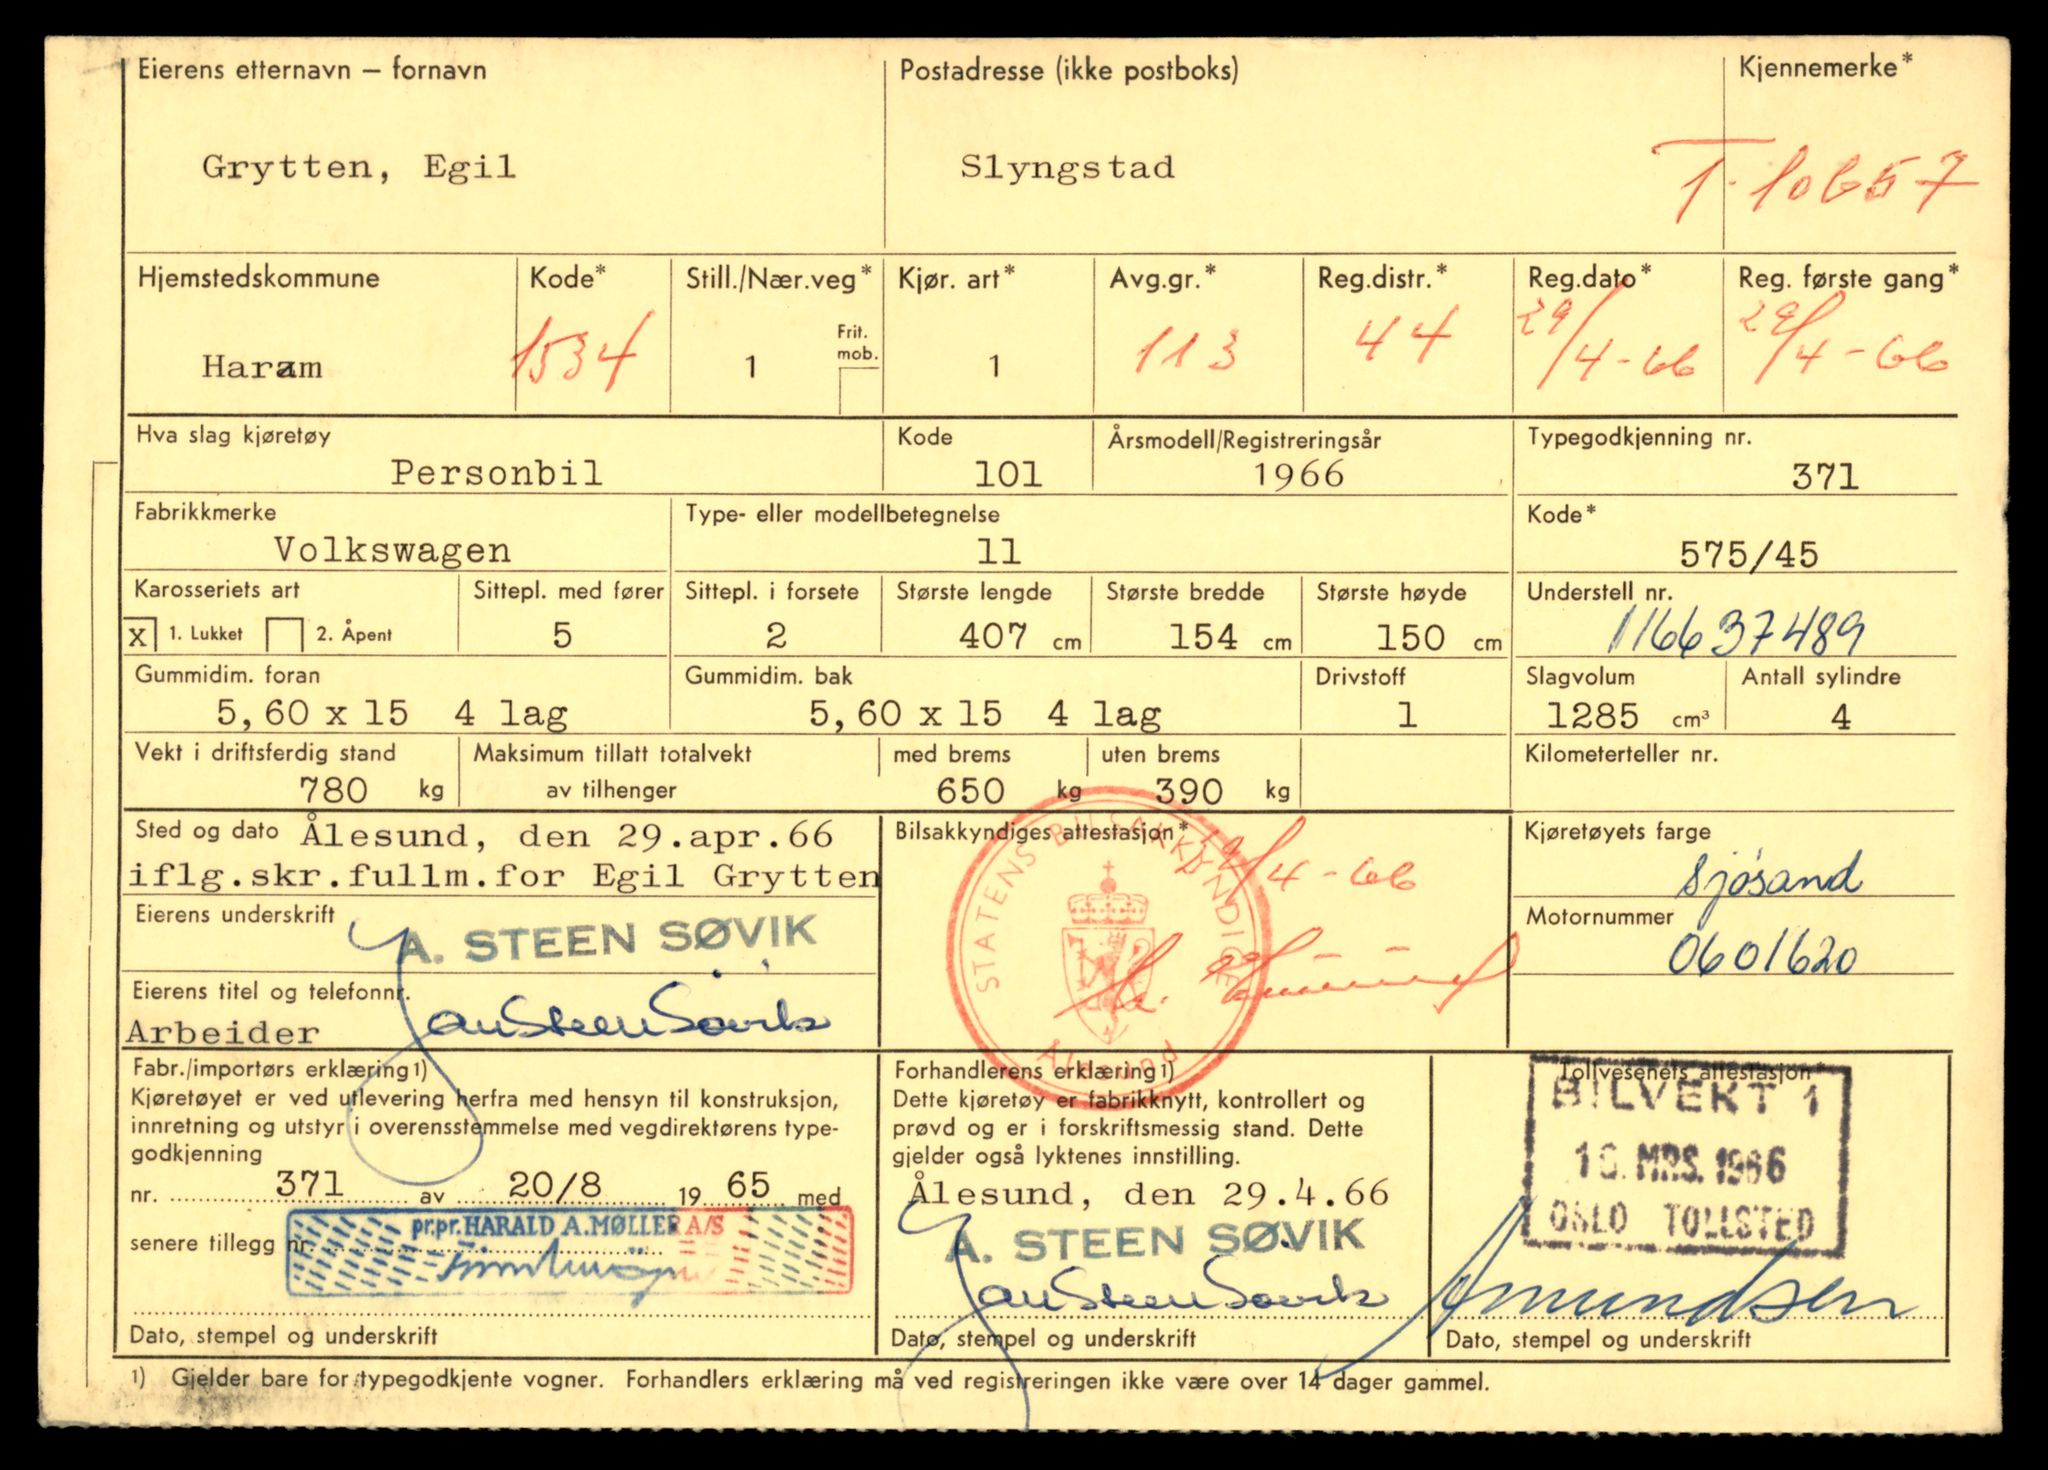 Eierens etternavn – fornavn Postadresse (ikke postboks) Kjennemerke*
Grytten, Egil Slyngstad T-10657
Hjemstedskommune Kode* Still./Nær.veg* Kjør. art* Avg.gr.* Reg.distr.* Reg.dato* Reg. første gang*
Frit. mob.
Haram 1534 1 1 113 44 29/4-66 29/4-66
Hva slag kjøretøy Kode Årsmodell/Registreringsår Typegodkjenning nr.
Personbil 101 1966 371
Fabrikkmerke Type- eller modellbetegnelse Kode*
Volkswagen 11 575/45
Karosseriets art Sittepl. med fører Sittepl. i forsete Største lengde Største bredde Største høyde Understell nr.
X 1. Lukket 2. Åpent 5 2 407 cm 154 cm 150 cm 116637489
Gummidim. foran Gummidim. bak Drivstoff Slagvolum Antall sylindre
5,60 x 15 4 lag 5,60 x 15 4 lag 1 1285 cm³ 4
Vekt i driftsferdig stand Maksimum tillatt totalvekt med brems uten brems Kilometerteller nr.
780 kg av tilhenger 650 kg 390 kg
Sted og dato Ålesund, den 29.apr.66 Bilsakkyndiges attestasjon* Kjøretøyets farge
iflg.skr.fullm.for Egil Grytten 29/4-66 sjøsand
STATENS BILSAKKYNDIGE
Ålesund
Eierens underskrift A. STEEN SØVIK Motornummer
0601620
Eierens titel og telefonnr.
Arbeider Jan Steen Søvik
Fabr./importørs erklæring1) Forhandlerens erklæring1) Tollvesenets attestasjon*
Kjøretøyet er ved utlevering herfra med hensyn til konstruksjon,
innretning og utstyr i overensstemmelse med vegdirektørens type-
godkjenning
nr. 371 av 20/8 19 65 med
senere tillegg nr.
pr.pr. HARALD A. MØLLER A/S
Dato, stempel og underskrift
Dette kjøretøy er fabrikknytt, kontrollert og
prøvd og er i forskriftsmessig stand. Dette
gjelder også lyktenes innstilling.
Ålesund, den 29.4.66
A. STEEN SØVIK
Jan Steen Søvik
Dato, stempel og underskrift
BILVEKT 1
MRS. 1966
OSLO TOLLSTED
Amundsen
Dato, stempel og underskrift
1) Gjelder bare for typegodkjente vogner. Forhandlers erklæring må ved registreringen ikke være over 14 dager gammel.